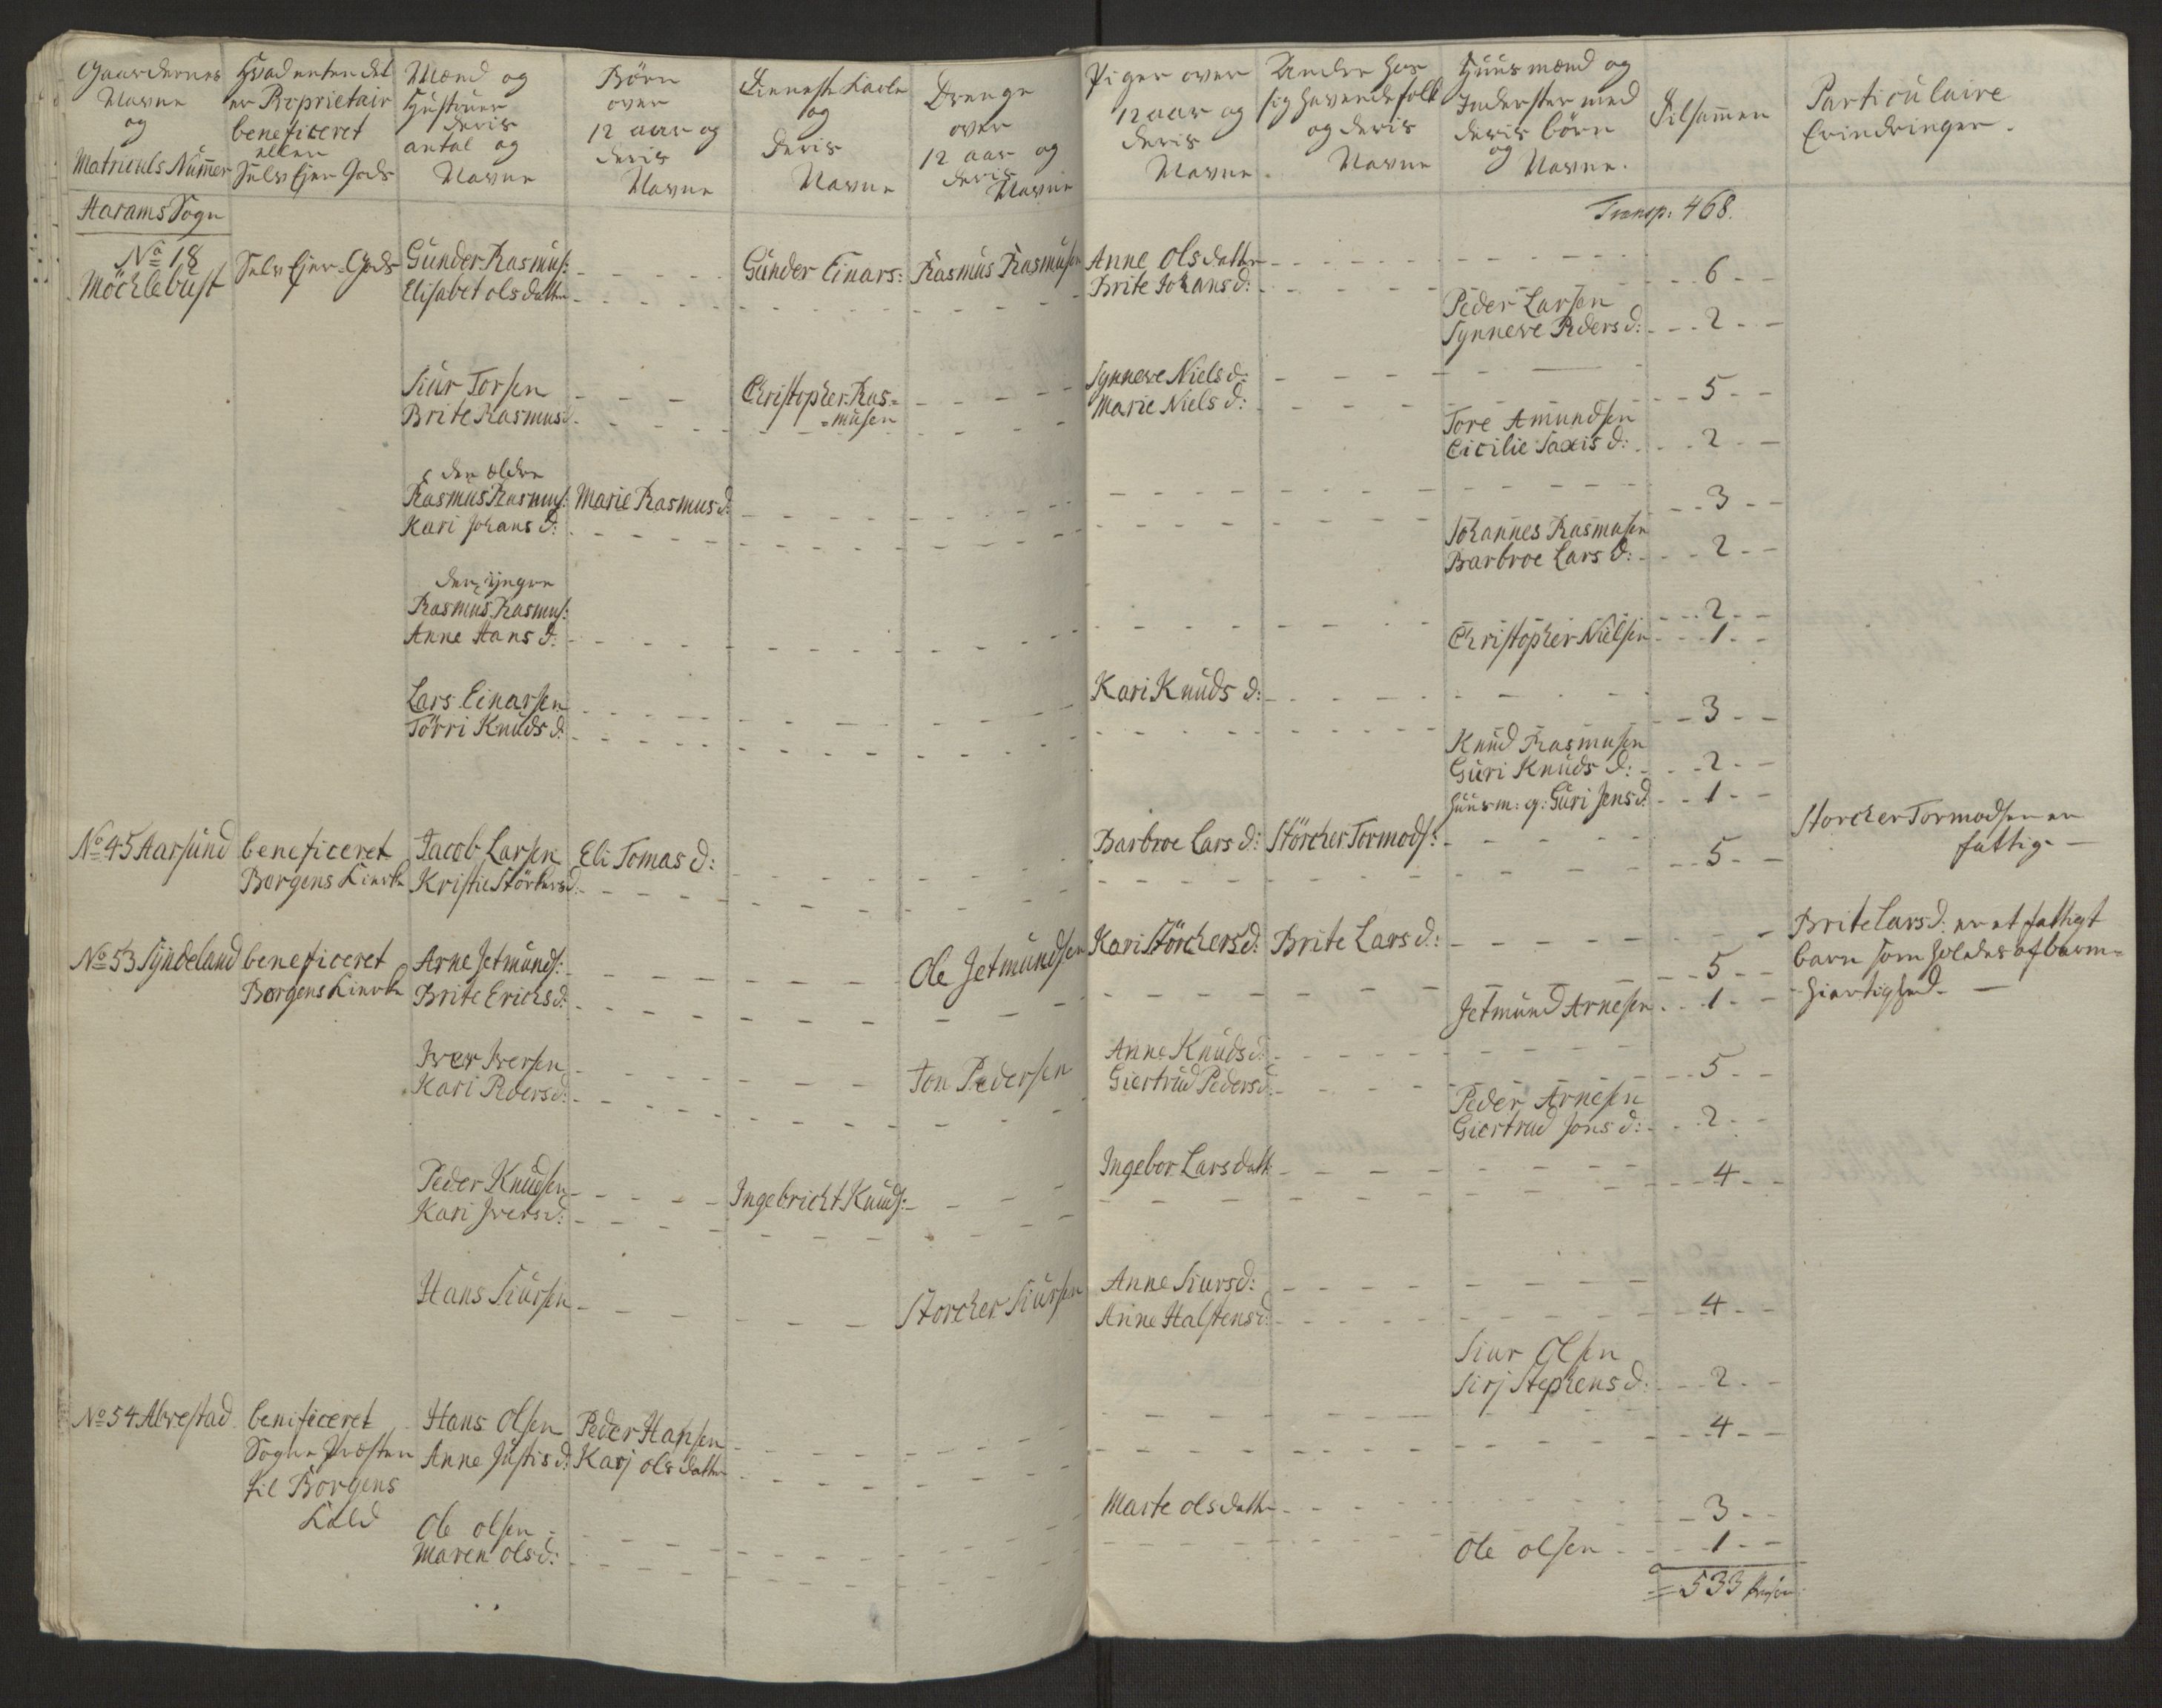 Gaardernes
Navne
og
Matriculs Nummer
Hvad enten det
er Proprietair
beneficeret
eller
Selv Ejer Gods
Mænd og
Hustruer
deris
antal og
Navne
Börn
over
12 aar og
deris
Navne
Tienneste Karle
og
Deris
Navne
Drenge
over
12 aar og
deris
Navne
Piger over
12 aar og
deris
Navne.
Andre hos
sig havende folk
og deris
Navne
Huusmænd og
Inderster med
deris börn
og
Navne.
Tilsammen
Particulaire
Erindringer.
Harams Sogn
Transp: 468.
No 18
Möchlebust
Selv Ejer-Gods
Gunder Rasmus:
Elisabet olsdatter
Gunder Einars:
Rasmus Rasmusen
Anne Olsdatter
Brite Johansd:
6
Peder Larsen
Synneve Pedersd:
2
Siur Torsen
Brite Rasmusd.
Christopher Ras=
=musen
Synneve Nielsd:
Marie Nielsd:
5
Tore Amundsen
Cicilie Saxisd:
2
den ældre
Rasmus Rasmus:
Kari Johansd:
Marie Rasmusd:
3
Johannes Rasmusen
Barbroe Larsd:
2
den yngre
Rasmus Rasmus:
Anne Hansd:
2
Christopher Nielsen
1
Lars Einarsen
Törri Knudsd:
Kari Knudsd:
3
Knud Rasmusen
Guri Knudsd:
2
huusm: q: Guri Jensd:
1
No 45 Aarsund
beneficeret
Borgens Kirke
Jacob Larsen
Kristie Störkersd:
Eli Tomasd:
Barbroe Larsd:
Störcher Tormods:
5
Storcher Tormodsen er
fattig
No 53 Syndeland
beneficeret
Borgens Kirke
Arne Jetmunds:
Brite Erichsd:
Ole Jetmundsen
Kari Störchersd:
Brite Larsd:
5
Brite Larsd: er et fattigt
barn som holdes af barm=
hiertighed.
Jetmund Arnesen
1
Iver Iversen
Kari Pedersd:
Jon Pedersen
Anne Knudsd:
Giertrud Pedersd:
5
Peder Arnesen
Giertrud Jonsd:
2
Peder Knudsen
Kari Iversd:
Ingebricht Knuds:
Ingebor Larsdatt:
4
Hans Siursen
Storcher Siursen
Anne Siursd:
Anne Halstensd:
4
Siur Olsen
Sirj Stephensd:
2
No 54 Alvestad
benificeret
Sogne Præsten
til Borgens
Kald
Hans Olsen
Anne Justisd:
Peder Hansen
Karj olsdatter
4
Ole olsen
Maren olsd:
Marte olsdatter
3
Ole olsen
1
= 533